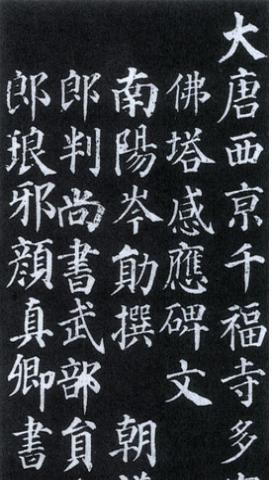 大唐西亰千福寺多
佛塔感應碑文
南陽岑勛撰 朝
郎判尚書武部貟
郎琅邪顏真卿書